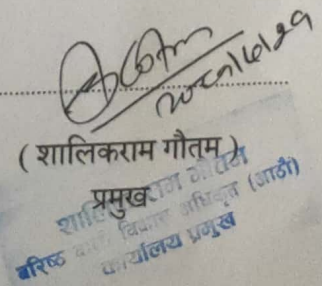 ( शालिकराम गौतम )
प्रमुख
शालिकराम गौतम
बरिष्ठ बाली विकास अधिकृत (आठौं)
कार्यालय प्रमुख